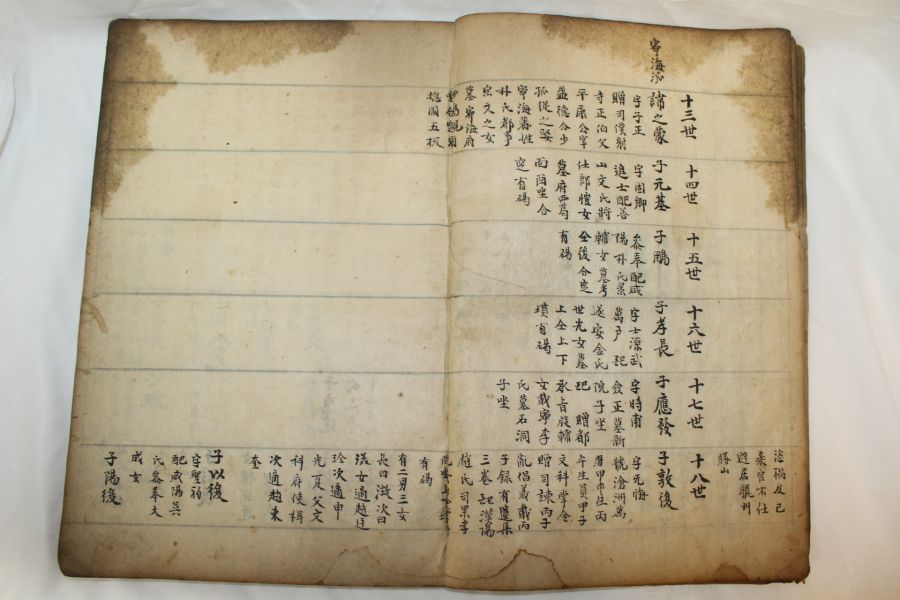 寧海派
十三世
之蒙
字子正
寺正伯父
平康公宰
益德公少
孤從之娶
寧海蕃姓
朴氏都事
宗文之女
墓寧海府
十四世
子元基
字國卿
進士配善
山文氏將
仕郎愷女
墓府西葛
面酉坐合
窆有碣
十五世
子鵬
叅奉配咸
陽朴氏景
輔女墓考
仝後合窆
有碣
十六世
子孝長
字士源武
萬戶 配
遂安金氏
世光女墓
上仝上下
墳有碣
十七世
子應發
字時甫
僉正墓新
院子坐
配 贈都
女載寧李
氏墓石洞
子坐
禍及己
棄官不仕
遯居龍州
勝山
十八世
子敦後
字元悔
號滄洲萬
曆甲申生丙
午生員甲子
文科學令
贈司諫丙子
亂倡義載丙
子錄有遺集
三卷配漢陽
趙氏司果孝
有碣
有二男三女
長曰
次曰
漢女適趙廷
玲次適申
光夏父文
科府使楫
次適趙東
奎
子以後
配咸陽吳
氏叅奉大
成女
子陽後